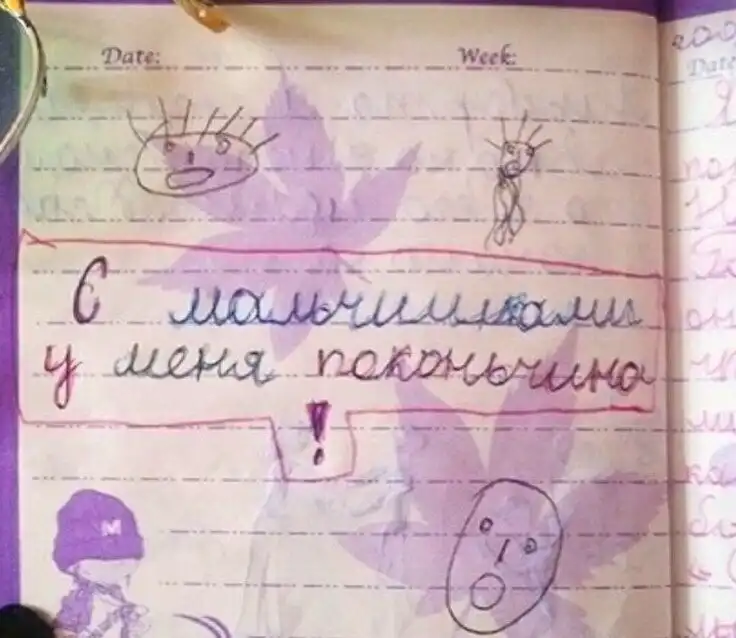 Date: Week:
С мальчишками
у меня поконьчина
!
M
Date